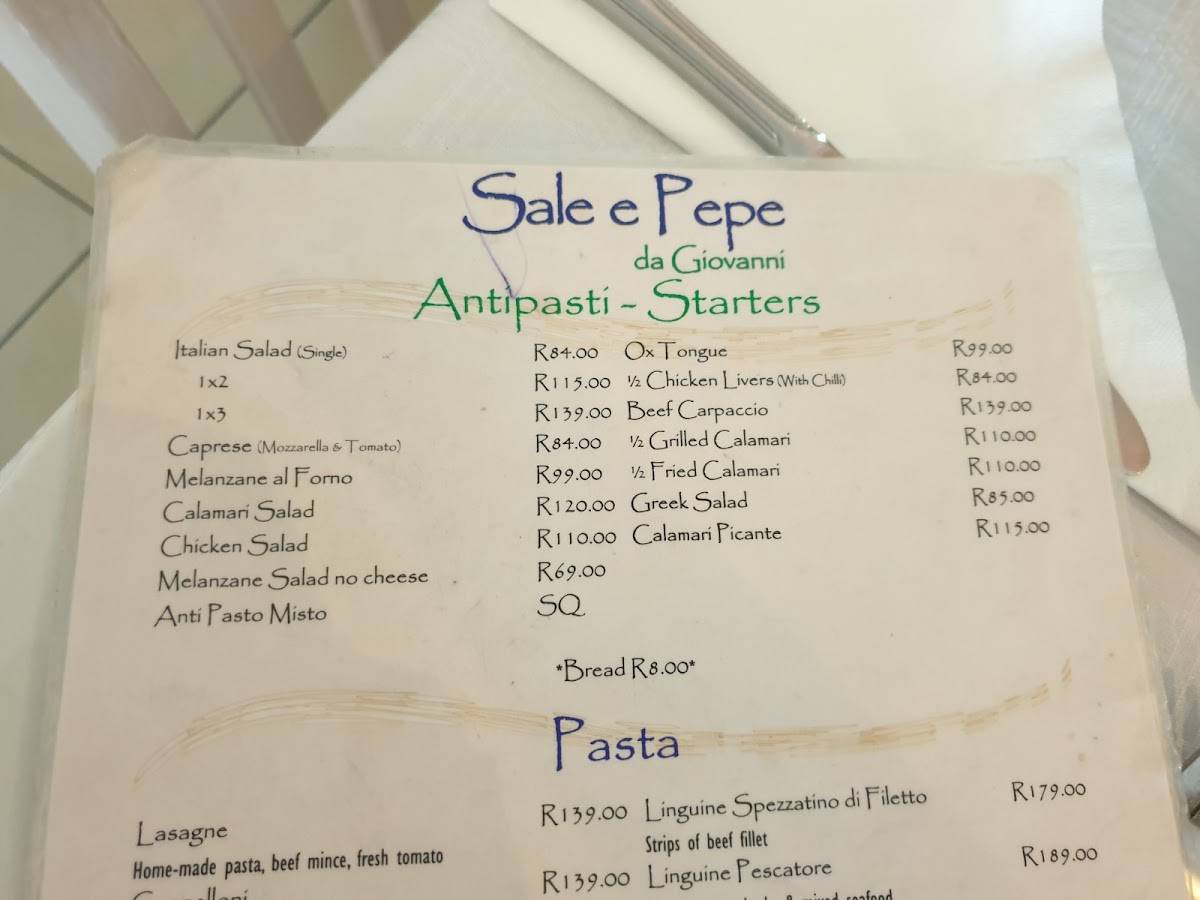 Sale e Pepe
da Giovanni
Antipasti - Starters
Italian Salad (Single) R84.00
1x2 R115.00
1x3 R139.00
Caprese (Mozzarella & Tomato) R84.00
Melanzane al Forno R99.00
Calamari Salad R120.00
Chicken Salad R110.00
Melanzane Salad no cheese R69.00
Anti Pasto Misto SQ
Ox Tongue R99.00
½ Chicken Livers (With Chilli) R84.00
Beef Carpaccio R139.00
½ Grilled Calamari R110.00
½ Fried Calamari R110.00
Greek Salad R85.00
Calamari Picante R115.00
*Bread R8.00*
Pasta
Lasagne R139.00
Home-made pasta, beef mince, fresh tomato
R139.00
Linguine Spezzatino di Filetto R179.00
Strips of beef fillet
Linguine Pescatore R189.00
& mixed seafood